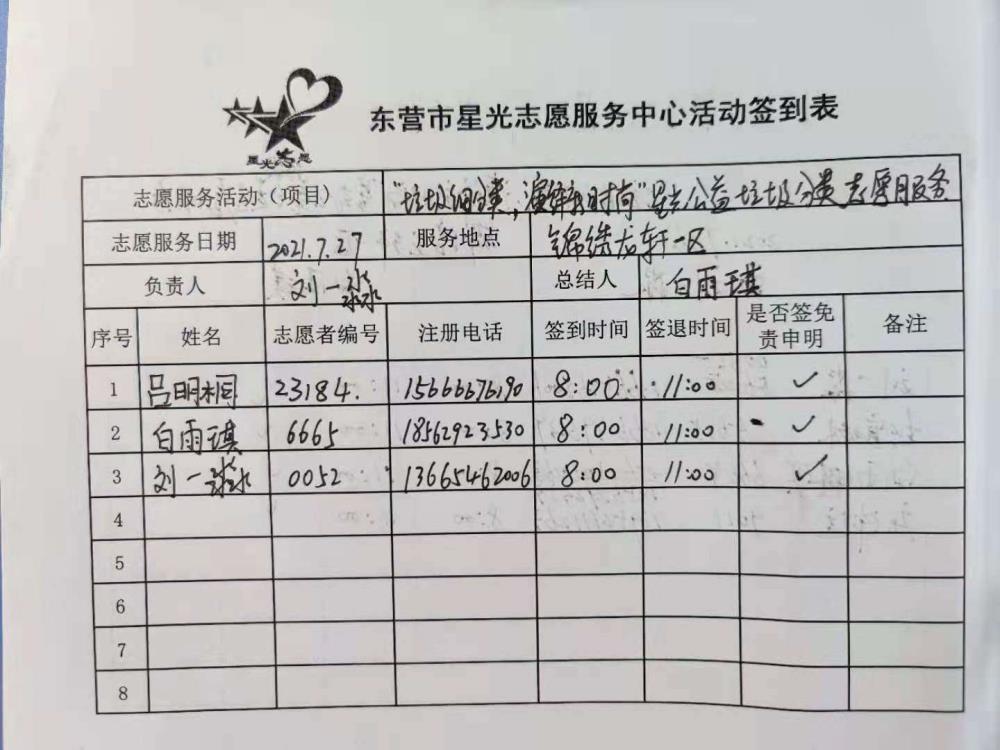 星光志愿
东营市星光志愿服务中心活动签到表
志愿服务活动（项目） "垃圾细分类，演绎新时尚"星光公益垃圾分类志愿服务
志愿服务日期 2021.7.27 服务地点 锦绣龙轩一区
负责人 刘一淼 总结人 白雨琪
序号 姓名 志愿者编号 注册电话 签到时间 签退时间 是否签免责申明 备注
1 吕明桐 23184. 15666676190 8:00 11:00 ✓
2 白雨琪 6665 18562923530 8:00 11:00 ✓
3 刘一 0052 13665462006 8:00 11:00 ✓
4
5
6
7
8